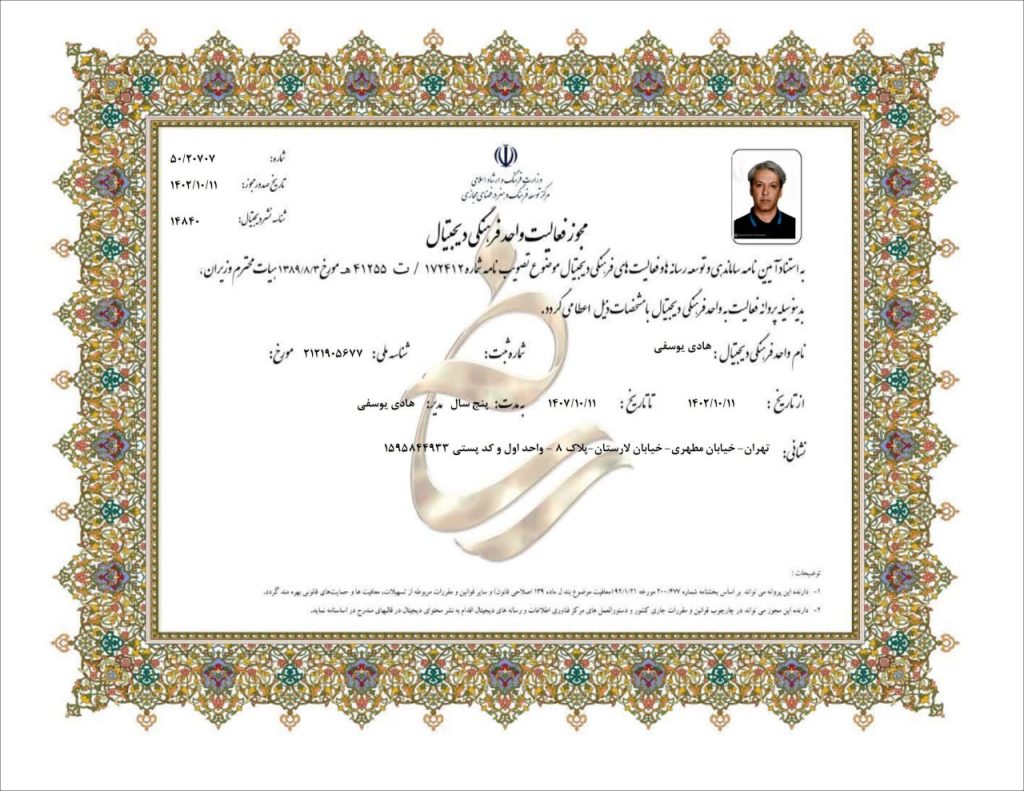 وزارت فرهنگ و ارشاد اسلامی
مرکز توسعه فرهنگ و هنر در فضای مجازی
شماره: ۵۰/۲۰۷۰۷
تاریخ صدور مجوز: ۱۴۰۲/۱۰/۱۱
شناسه نشر دیجیتال: ۱۴۸۴۰
مجوز فعالیت واحد فرهنگی دیجیتال
به استناد آیین نامه ساماندهی و توسعه رسانه ها و فعالیت های فرهنگی دیجیتال موضوع تصویب نامه شماره ۱۷۲۴۱۲ / ت ۴۱۲۵۵ هـ مورخ ۱۳۸۹/۸/۳ هیات محترم وزیران،
بدینوسیله پروانه فعالیت به واحد فرهنگی دیجیتال با مشخصات ذیل اعطا می گردد.
نام واحد فرهنگی دیجیتال : هادی یوسفی شماره ثبت: شناسه ملی: ۲۱۲۱۹۰۵۶۷۷ مورخ:
از تاریخ : ۱۴۰۲/۱۰/۱۱ تا تاریخ : ۱۴۰۷/۱۰/۱۱ به مدت: پنج سال مدیر: هادی یوسفی
نشانی: تهران- خیابان مطهری- خیابان لارستان-پلاک ۸ - واحد اول و کد پستی ۱۵۹۵۸۴۴۹۳۳
توضیحات :
۱- دارنده این پروانه می تواند بر اساس بخشنامه شماره ۲۰۰/۴۷۷ مورخه ۹۲/۱/۲۱ (معافیت موضوع بند ل ماده ۱۳۹ اصلاحی قانون) و سایر قوانین و مقررات مربوطه از تسهیلات، معافیت ها و حمایت‌های قانونی بهره مند گردد.
۲- دارنده این مجوز می تواند در چارچوب قوانین و مقررات جاری کشور و دستورالعمل های مرکز فناوری اطلاعات و رسانه های دیجیتال اقدام به نشر محتوای دیجیتال در قالبهای مندرج در اساسنامه نماید.